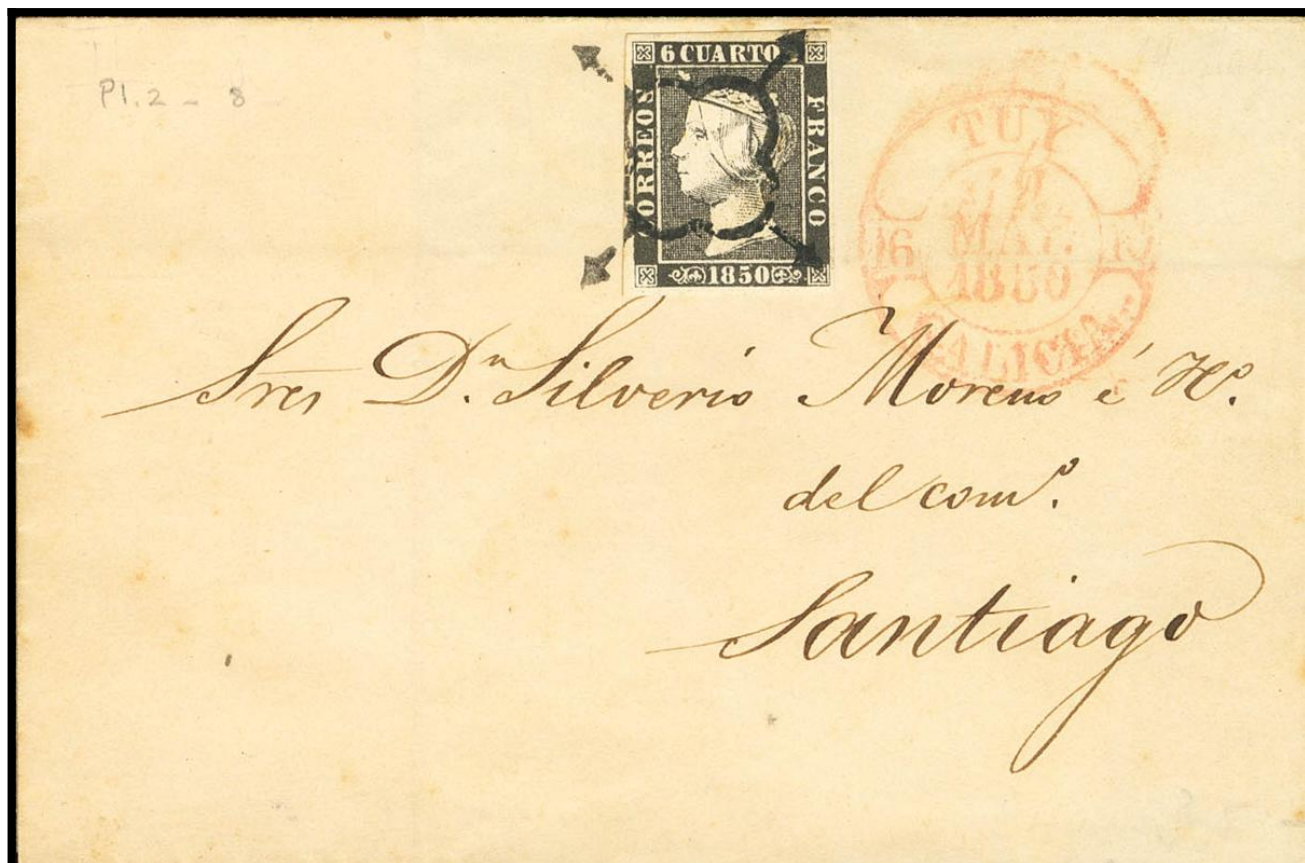 Pl. 2 - 8
6 CUARTOS
CORREOS
FRANCO
1850
TUY
MAY.
1850
GALICIA.
Sres Dn. Silverio Moreno é Ho.
del como.
Santiago